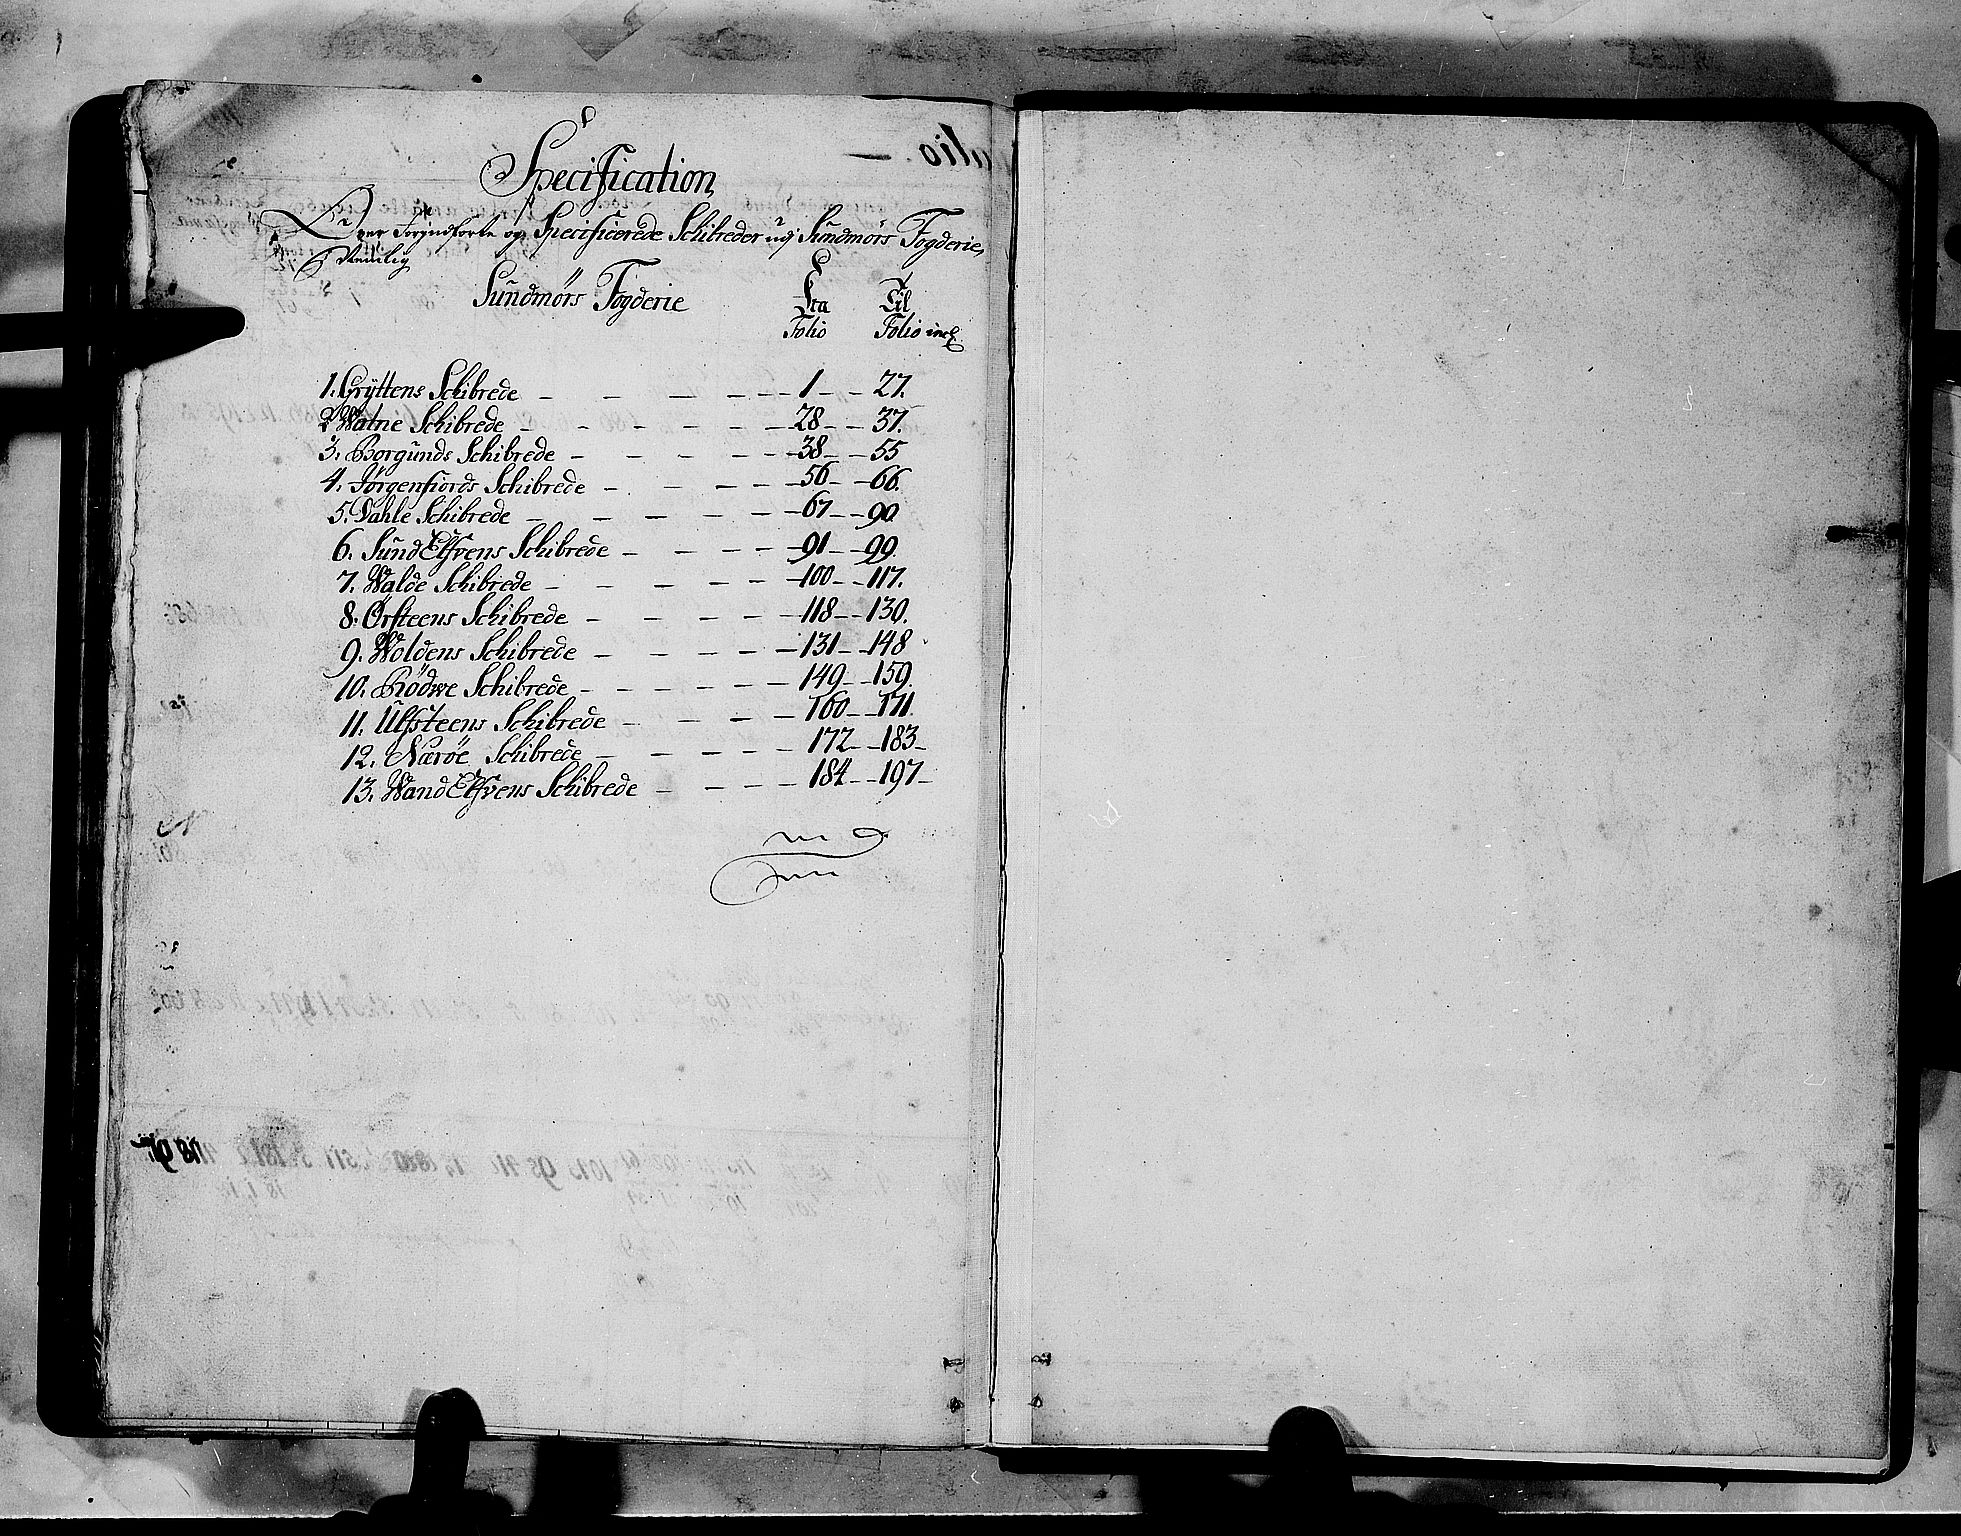 Specification
Over og Specificerede Schibreder udj Sundmörs Fogderie,
Nemlig
Sundmörs Fogderie
Fra Til
Folio Folio incl
1. Gryttens Schibrede 1 27.
2 Watne Schibrede 28 37.
3. Borgunds Schibrede 38 55
4. Jörgenfiords Schibrede 56 66.
5. Dahle Schibrede 67 90.
6. SundElfvens Schibrede 91 99.
7. Walde Schibrede 100 117.
8. Örsteens Schibrede 118 130.
9. Woldens Schibrede 131 148
10. Rödwe Schibrede 149 159.
11. Ulfsteens Schibrede 160 171.
12. Naröe Schibrede 172 183
13. WandElfvens Schibrede 184 197